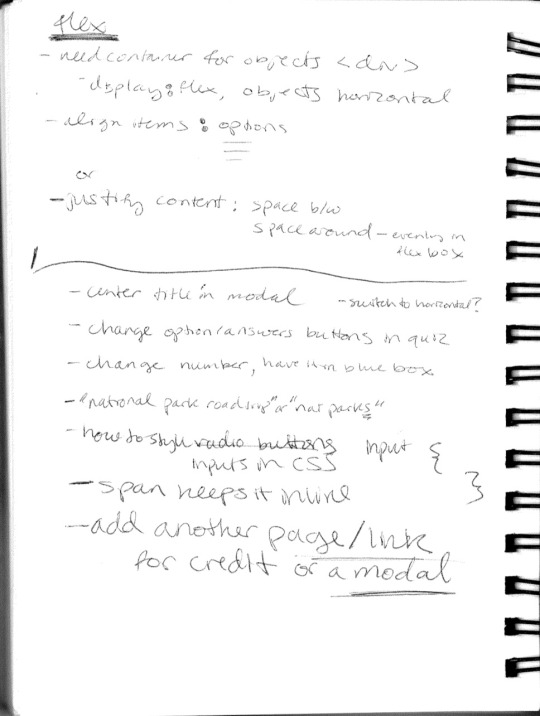 flex
- need container for objects <div>
- display: flex, objects horizontal
- align items: options
or
- justify content: space b/w
space around - evenly in
flex box
- center title in modal - switch to horizontal?
- change option/answers buttons in quiz
- change number, have it in blue box
- "national park road trip" or "nat parks"
- how to style radio buttons input {
inputs in CSS
- span keeps it inline }
- add another page/link
for credit or a modal